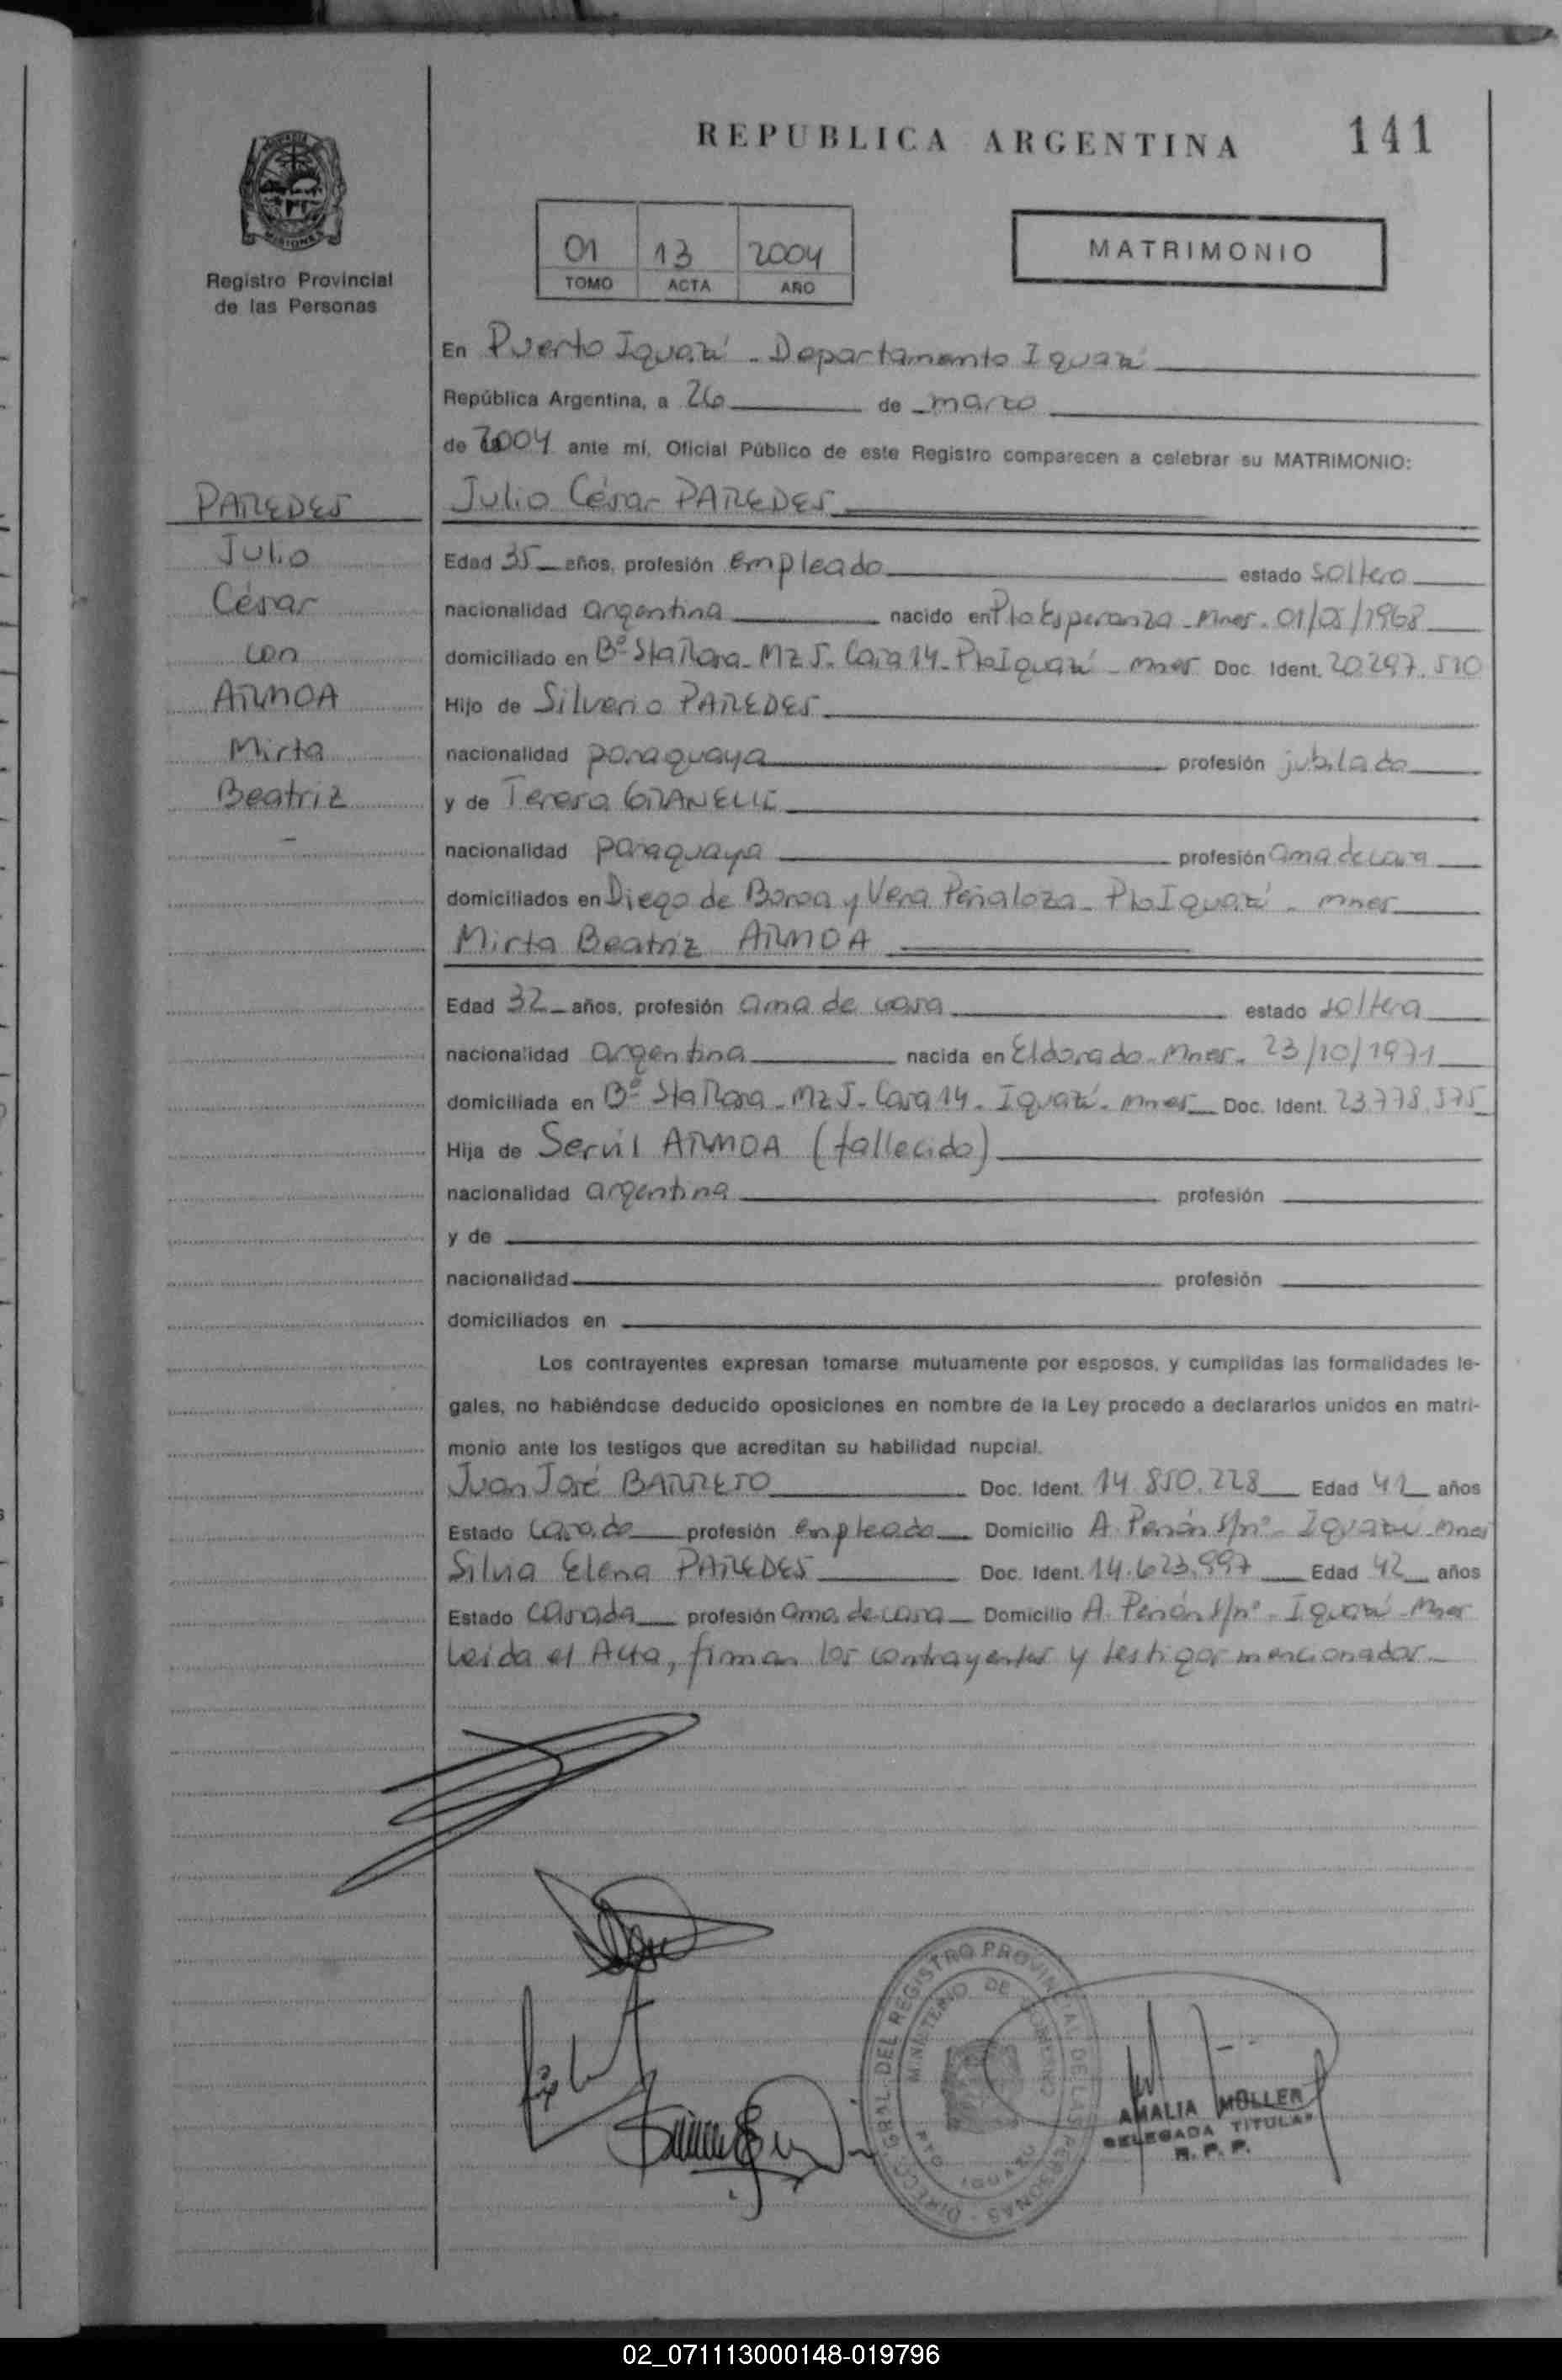 REPUBLICA ARGENTINA 141
MISIONES
Registro Provincial
de las Personas
01 13 2004
TOMO ACTA AÑO
MATRIMONIO
En Puerto Iguazú - Departamento Iguazú
República Argentina, a 26 de marzo
de 2004 ante mí, Oficial Público de este Registro comparecen a celebrar su MATRIMONIO:
PAREDES
Julio
César
con
ARMOA
Mirta
Beatriz
Julio César PAREDES
Edad 35 años, profesión empleado estado soltero
nacionalidad argentina nacido en Pto Esperanza - Mnes. 01/05/1968
domiciliado en Bº Sta Rosa - Mz J - Casa 14 - Pto Iguazú - Mnes Doc. Ident. 20.297.510
Hijo de Silverio PAREDES
nacionalidad paraguaya profesión jubilado
y de Teresa
nacionalidad paraguaya profesión ama de casa
domiciliados en Diego de Boroa y Vera Peñaloza - Pto Iguazú - Mnes
Mirta Beatriz ARMOA
Edad 32 años, profesión ama de casa estado soltera
nacionalidad argentina nacida en Eldorado - Mnes. 23/10/1971
domiciliada en Bº Sta Rosa - Mz J - Casa 14 - Iguazú - Mnes Doc. Ident. 23.778.575
Hija de Servil ARMOA (fallecido)
nacionalidad argentina profesión
y de
nacionalidad profesión
domiciliados en
Los contrayentes expresan tomarse mutuamente por esposos, y cumplidas las formalidades le-
gales, no habiéndose deducido oposiciones en nombre de la Ley procedo a declararlos unidos en matri-
monio ante los testigos que acreditan su habilidad nupcial.
Juan José BARRETO Doc. Ident. 14.850.228 Edad 42 años
Estado casado profesión empleado Domicilio A. Perón s/nº - Iguazú - Mnes
Silvia Elena PAREDES Doc. Ident. 14.623.997 Edad 42 años
Estado casada profesión ama de casa Domicilio A. Perón s/nº - Iguazú - Mnes
Leída el Acta, firman los contrayentes y testigos mencionados.-
DIRECC. GRAL. DEL REGISTRO PROVINCIAL DE LAS PERSONAS
MINISTERIO DE GOBIERNO
PTO IGUAZU
AMALIA MOLLER
DELEGADA TITULAR
R. P. P.
02_071113000148-019796